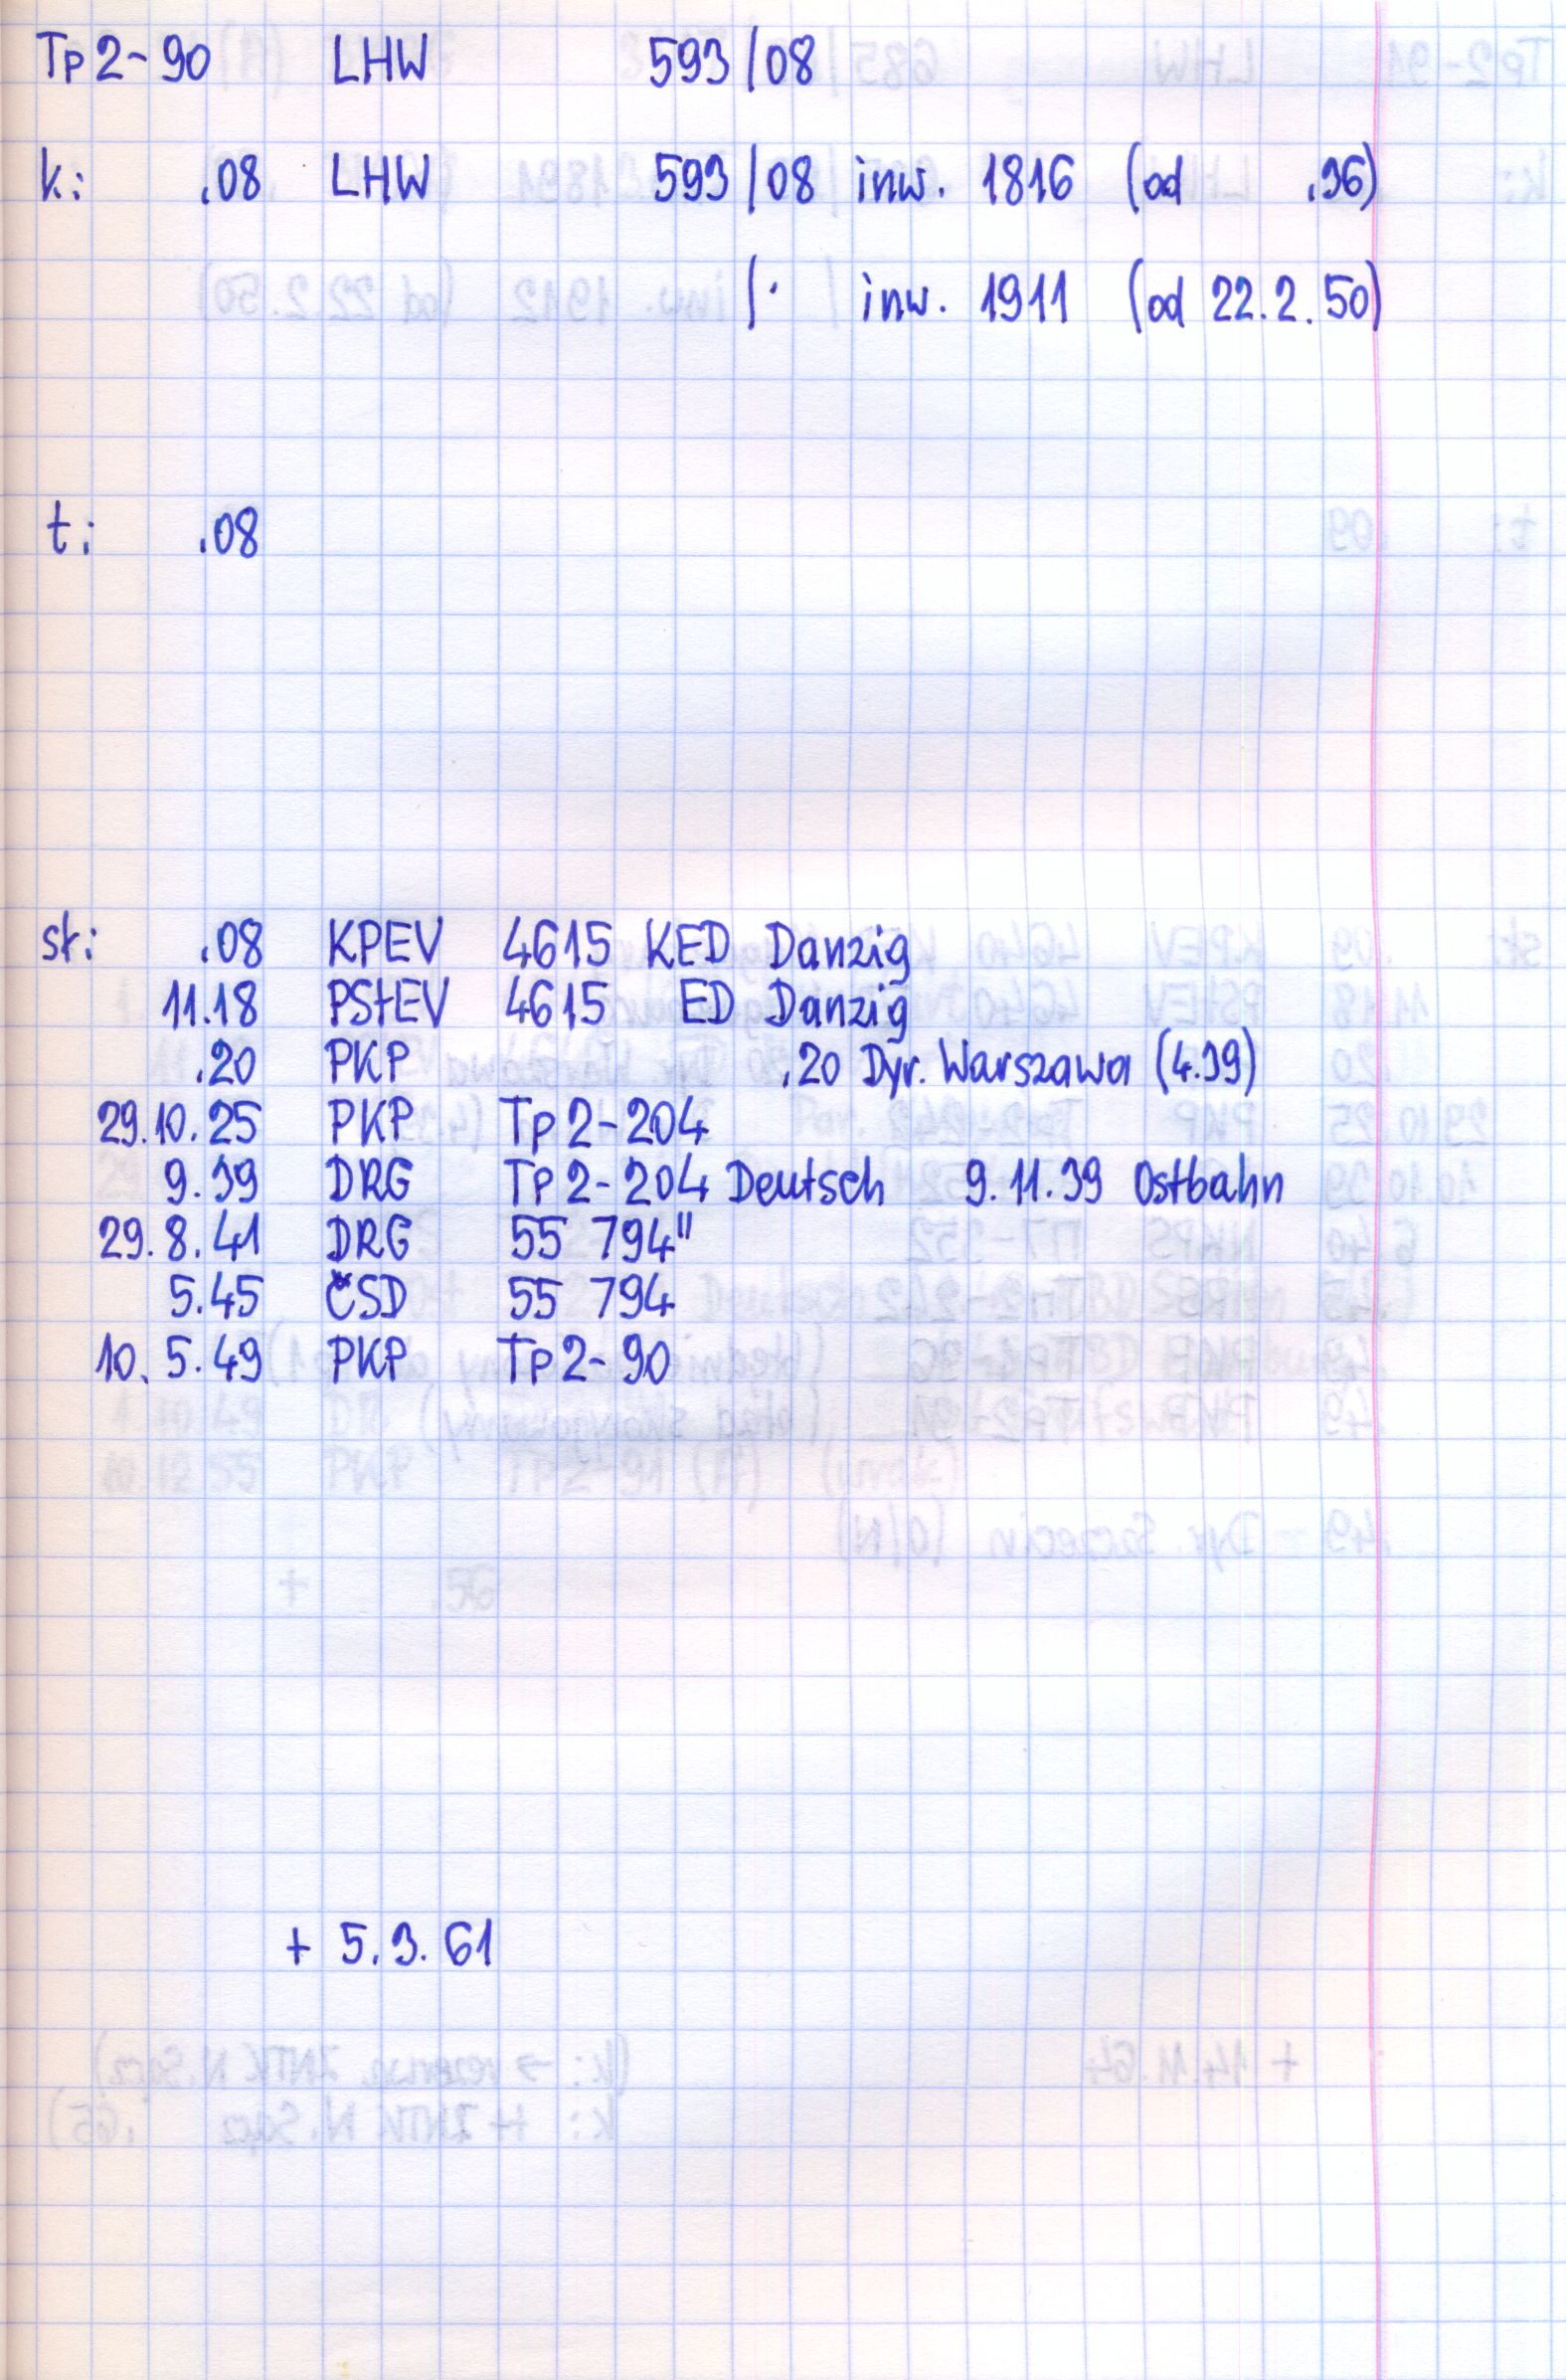 Tp2-90 LHW 593/08
k: .08 LHW 593/08 inw. 1816 (od .36)
/· inw. 1911 (od 22.2.50)
t: .08
st: .08 KPEV 4615 KED Danzig
11.18 PStEV 4615 ED Danzig
.20 PKP .20 Dyr. Warszawa (4.39)
29.10.25 PKP Tp2-204
9.39 DRG Tp2-204 Deutsch 9.11.39 Ostbahn
29.8.41 DRG 55 794"
5.45 ČSD 55 794
10.5.49 PKP Tp2-90
+ 5.3.61